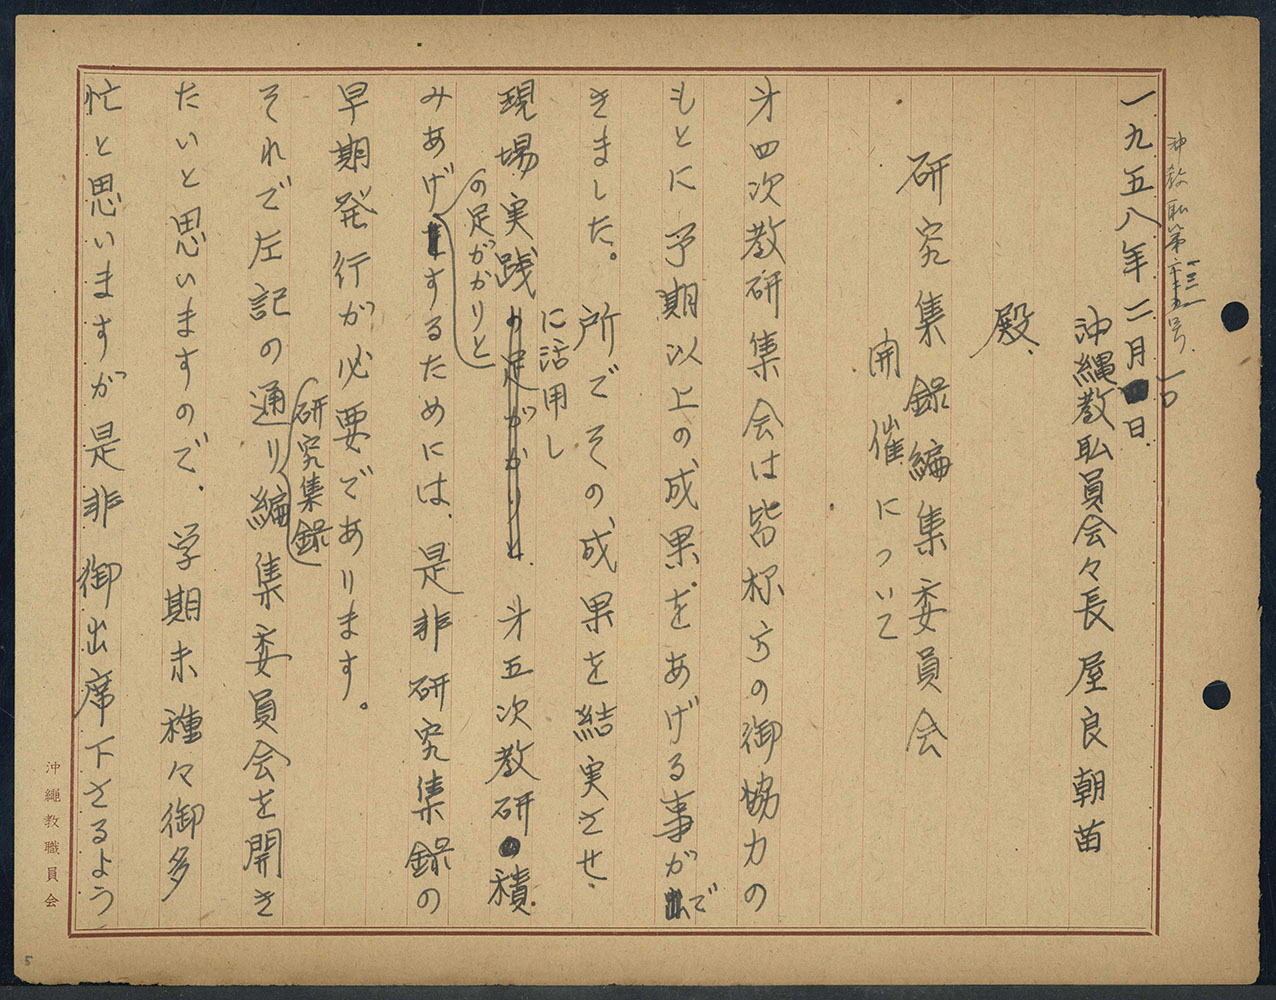 沖教職第二十五号
一九五八年二月一日
沖縄教职員会々長 屋良朝苗
殿
研究集録編集委員会
開催について
才四次教研集会は皆様方の御協力の
もとに予期以上の成果をあげる事がで
きました。所でその成果を結実させ、
に活用し
現場実践の足がかりと 才五次教研積
の足がかりと
みあげするためには、是非研究集録の
早期発行が必要であります。
研究集録
それで左記の通り編集委員会を開き
たいと思いますので、学期末種々御多
忙と思いますが是非御出席下さるよう
沖縄教職員会
5